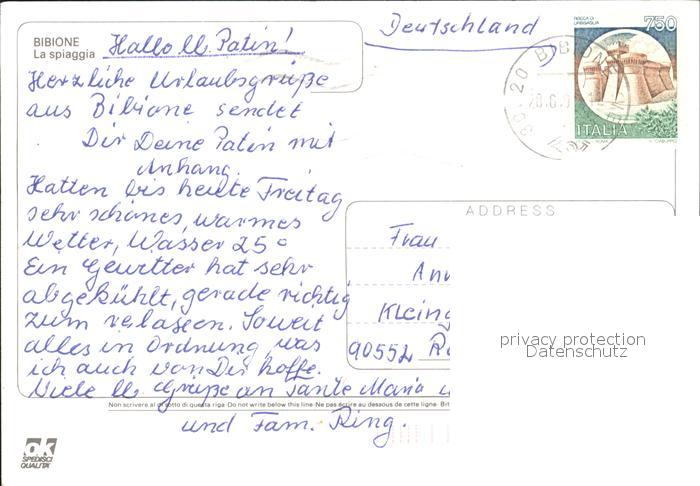 BIBIONE
La spiaggia
Hallo ll Patin!
Herzliche Urlaubsgrüße
aus Bibione sendet
Dir Deine Patin mit
Anhang.
Hatten bis heute Freitag
sehr schönes, warmes
Wetter, Wasser 25°
Ein Gewitter hat sehr
abgekühlt, gerade richtig
zum verlassen. Soweit
alles in Ordnung was
ich auch von Dir hoffe.
Viele ll Grüße an Tante Maria u
und Fam. Ring.
Deutschland
ROCCA DI
URBISAGLIA
750
ITALIA
20 BIBIONE
ADDRESS
Frau
Ann
Kleing
90552 Rö
privacy protection
Datenschutz
Non scrivere al di sotto di questa riga · Do not write below this line · Ne pas écrire au dessous de cette ligne · Bit
ok
SPEDISCI
QUALITA'